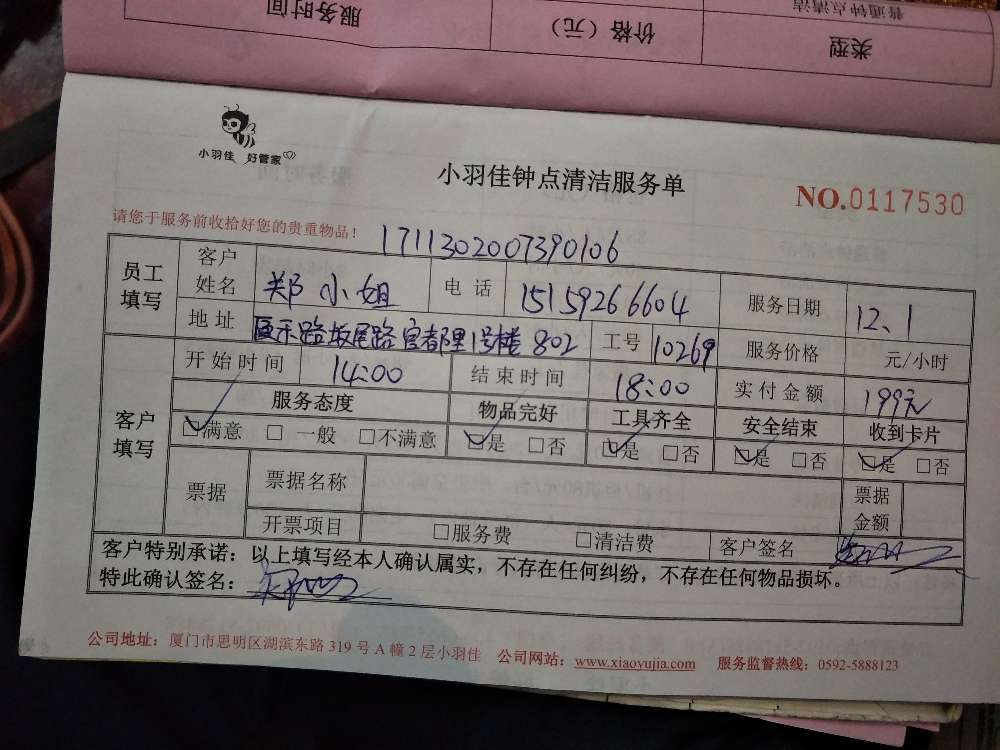 普通钟点清洁
类型
价格（元）
服务时间
小羽佳 好管家
小羽佳钟点清洁服务单
NO.0117530
请您于服务前收拾好您的贵重物品！
1711302007390106
员工填写
客户姓名 郑小姐 电话 15159266604 服务日期 12.1
地址 路坂尾路官都里1号楼802 工号 10269 服务价格 元/小时
客户填写
开始时间 14:00 结束时间 18:00 实付金额 199元
服务态度 物品完好 工具齐全 安全结束 收到卡片
☑满意 □一般 □不满意 ☑是 □否 ☑是 □否 ☑是 □否 ☑是 □否
票据 票据名称 票据金额
开票项目 □服务费 □清洁费 客户签名
客户特别承诺：以上填写经本人确认属实，不存在任何纠纷，不存在任何物品损坏。
特此确认签名：
公司地址：厦门市思明区湖滨东路319号A幢2层小羽佳 公司网站：www.xiaoyujia.com 服务监督热线：0592-5888123